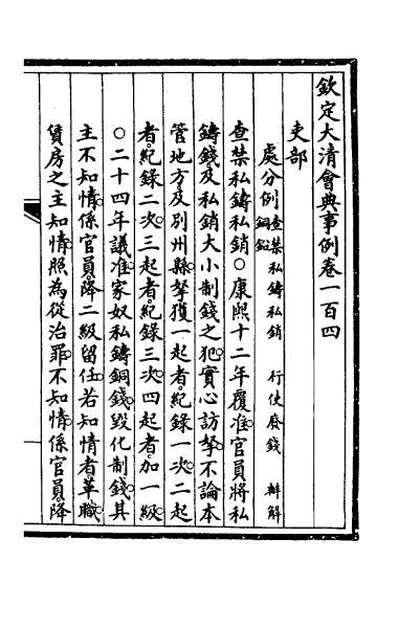 欽定大清會典事例卷一百四
吏部
處分例 查禁私鑄私銷 行使廢錢 辦解
銅鉛
查禁私鑄私銷○康熙十二年覆准官員將私
鑄錢及私銷大小制錢之犯實心訪拏不論本
管地方及別州縣拏獲一起者紀錄一次二起
者紀錄二次三起者紀錄三次四起者加一級
○二十四年議准家奴私鑄銅錢毀化制錢其
主不知情係官員降二級留任若知情者革職
賃房之主知情照為從治罪不知情係官員降